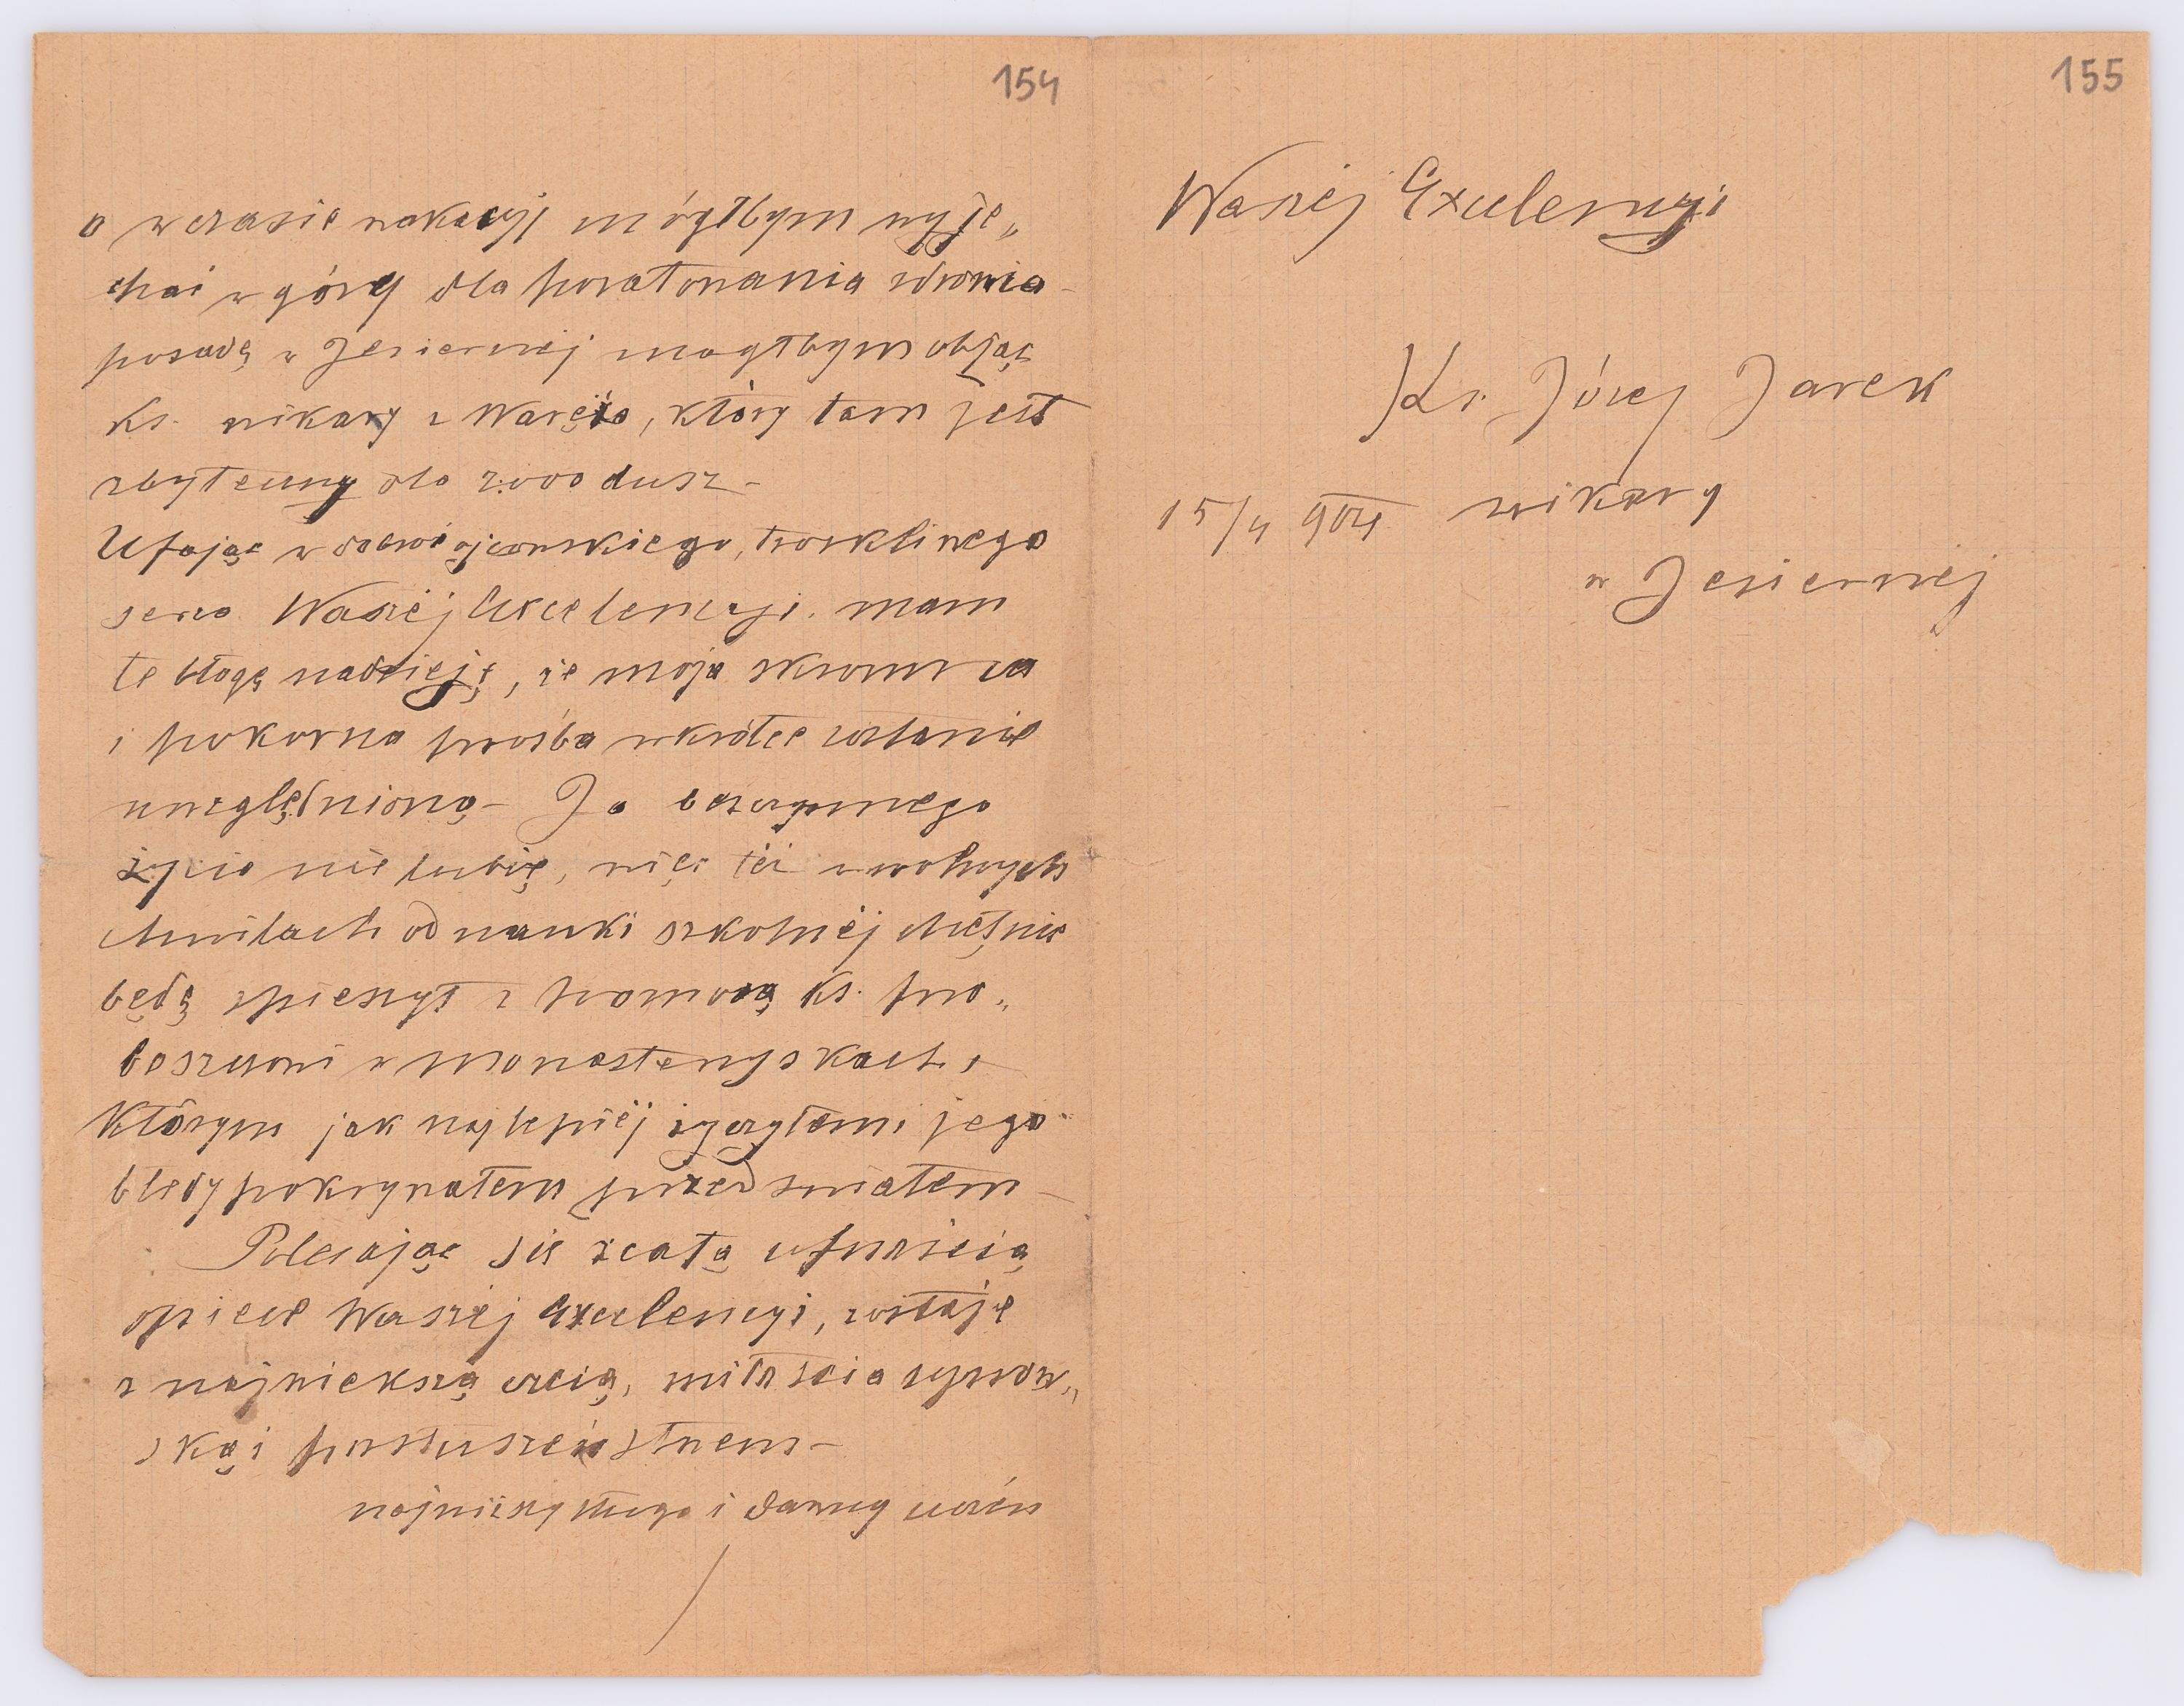 154
a w czasie wakacyj mógłbym wyje„
chać w góry dla poratowania zdrowia –
posadę w Jeziernej mogłbym objąć
ks. wikary z Waręża, który tam jest
zbyteczny dla 2.000 dusz –
Ufając w dobroć ojcowskiego, troskliwego
serca Waszéj Excelencyi. mam
te błogą nadzieję, że moja skromna
i pokorna prośba wkrótce zostanie
uwzględnioną – Ja bezczynnego
życia nie lubię, więc téż w wolnych
chwilach od nauki szkolnéj chętnie
będę spieszył z pomocą ks. pro„
boszczowi w Monasterzyskach z
którym jak najlepiéj żyłem i jego
błedy pokrywałem przed światem –
Polecając sie z całą ufnością
opiece Waszéj Excelencyi, zostaje
z najwiekszą czcią, miłościa synow„
ską i posłuszeństwem –
najniższy sługa i dawny uczeń
155
Waszéj Excelencyi
Ks. Józef Jarek
15/4 904. wikary
w Jeziernéj